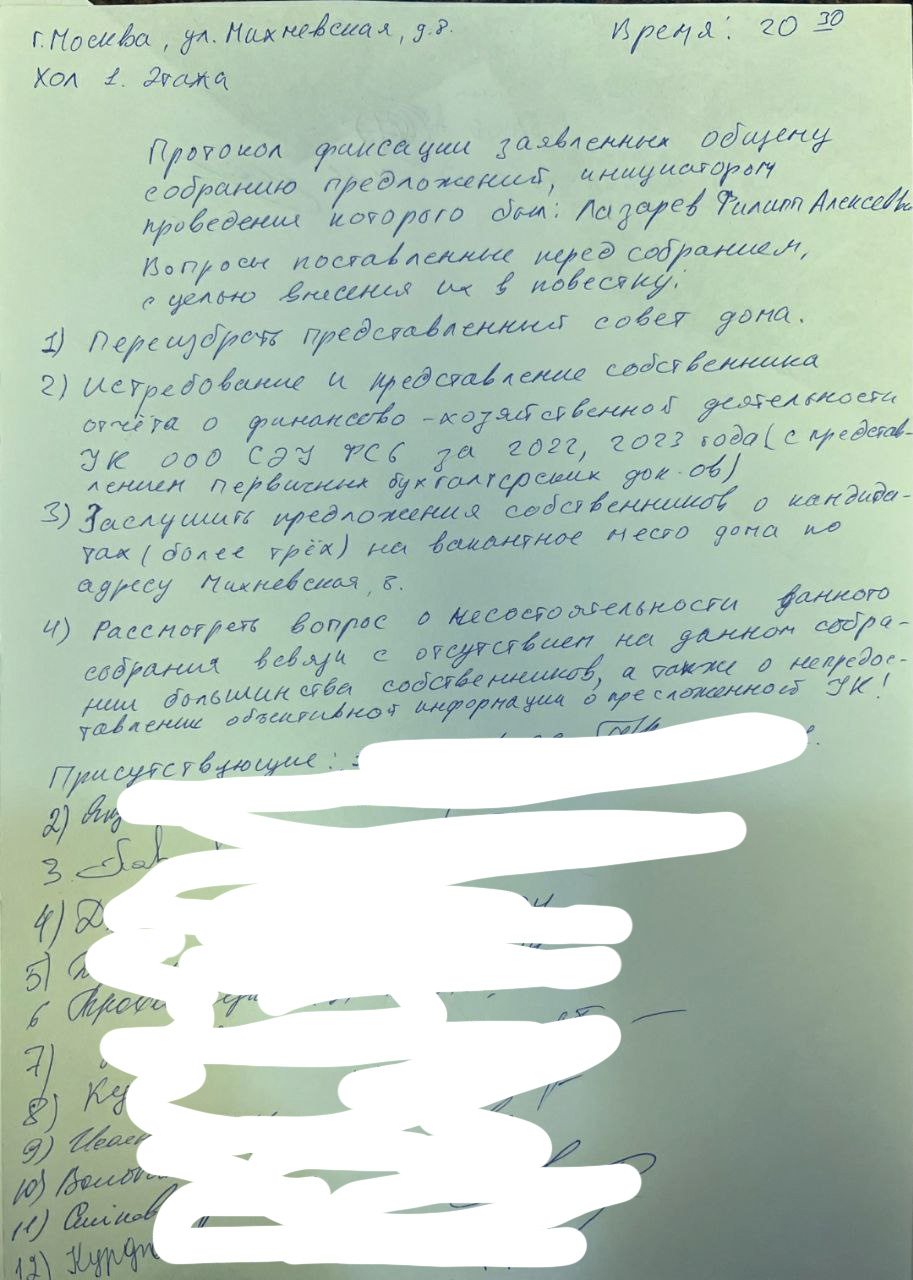 г. Москва, ул. Михневская, д.8. Время: 20 30
Хол 1. Этажа
Протокол фиксации заявленных общему
собранию предложений, инициатором
проведения которого был: Лазарев Филипп Алексеевич
Вопросы поставленные перед собранием,
с целью внесения их в повестку:
1) Переизбрать представленный совет дома.
2) Истребование и представление собственника
отчёта о финансово-хозяйственной деятельности
УК ООО СЭУ ФС6 за 2022, 2023 года (с представ-
лением первичных бухгалтерских док-ов)
3) Заслушить предложения собственников о кандида-
тах (более трёх) на вакантное место дома по
адресу Михневская, 8.
4) Рассмотреть вопрос о несостоятельности данного
собрания всвязи с отсутствием на данном собра-
нии большинства собственников, а также о непредос-
тавлении объективной информации о пресложенной УК!
Присутствующие:
2)
3.
4)
5)
6
7)
8)
9)
10)
11)
12)